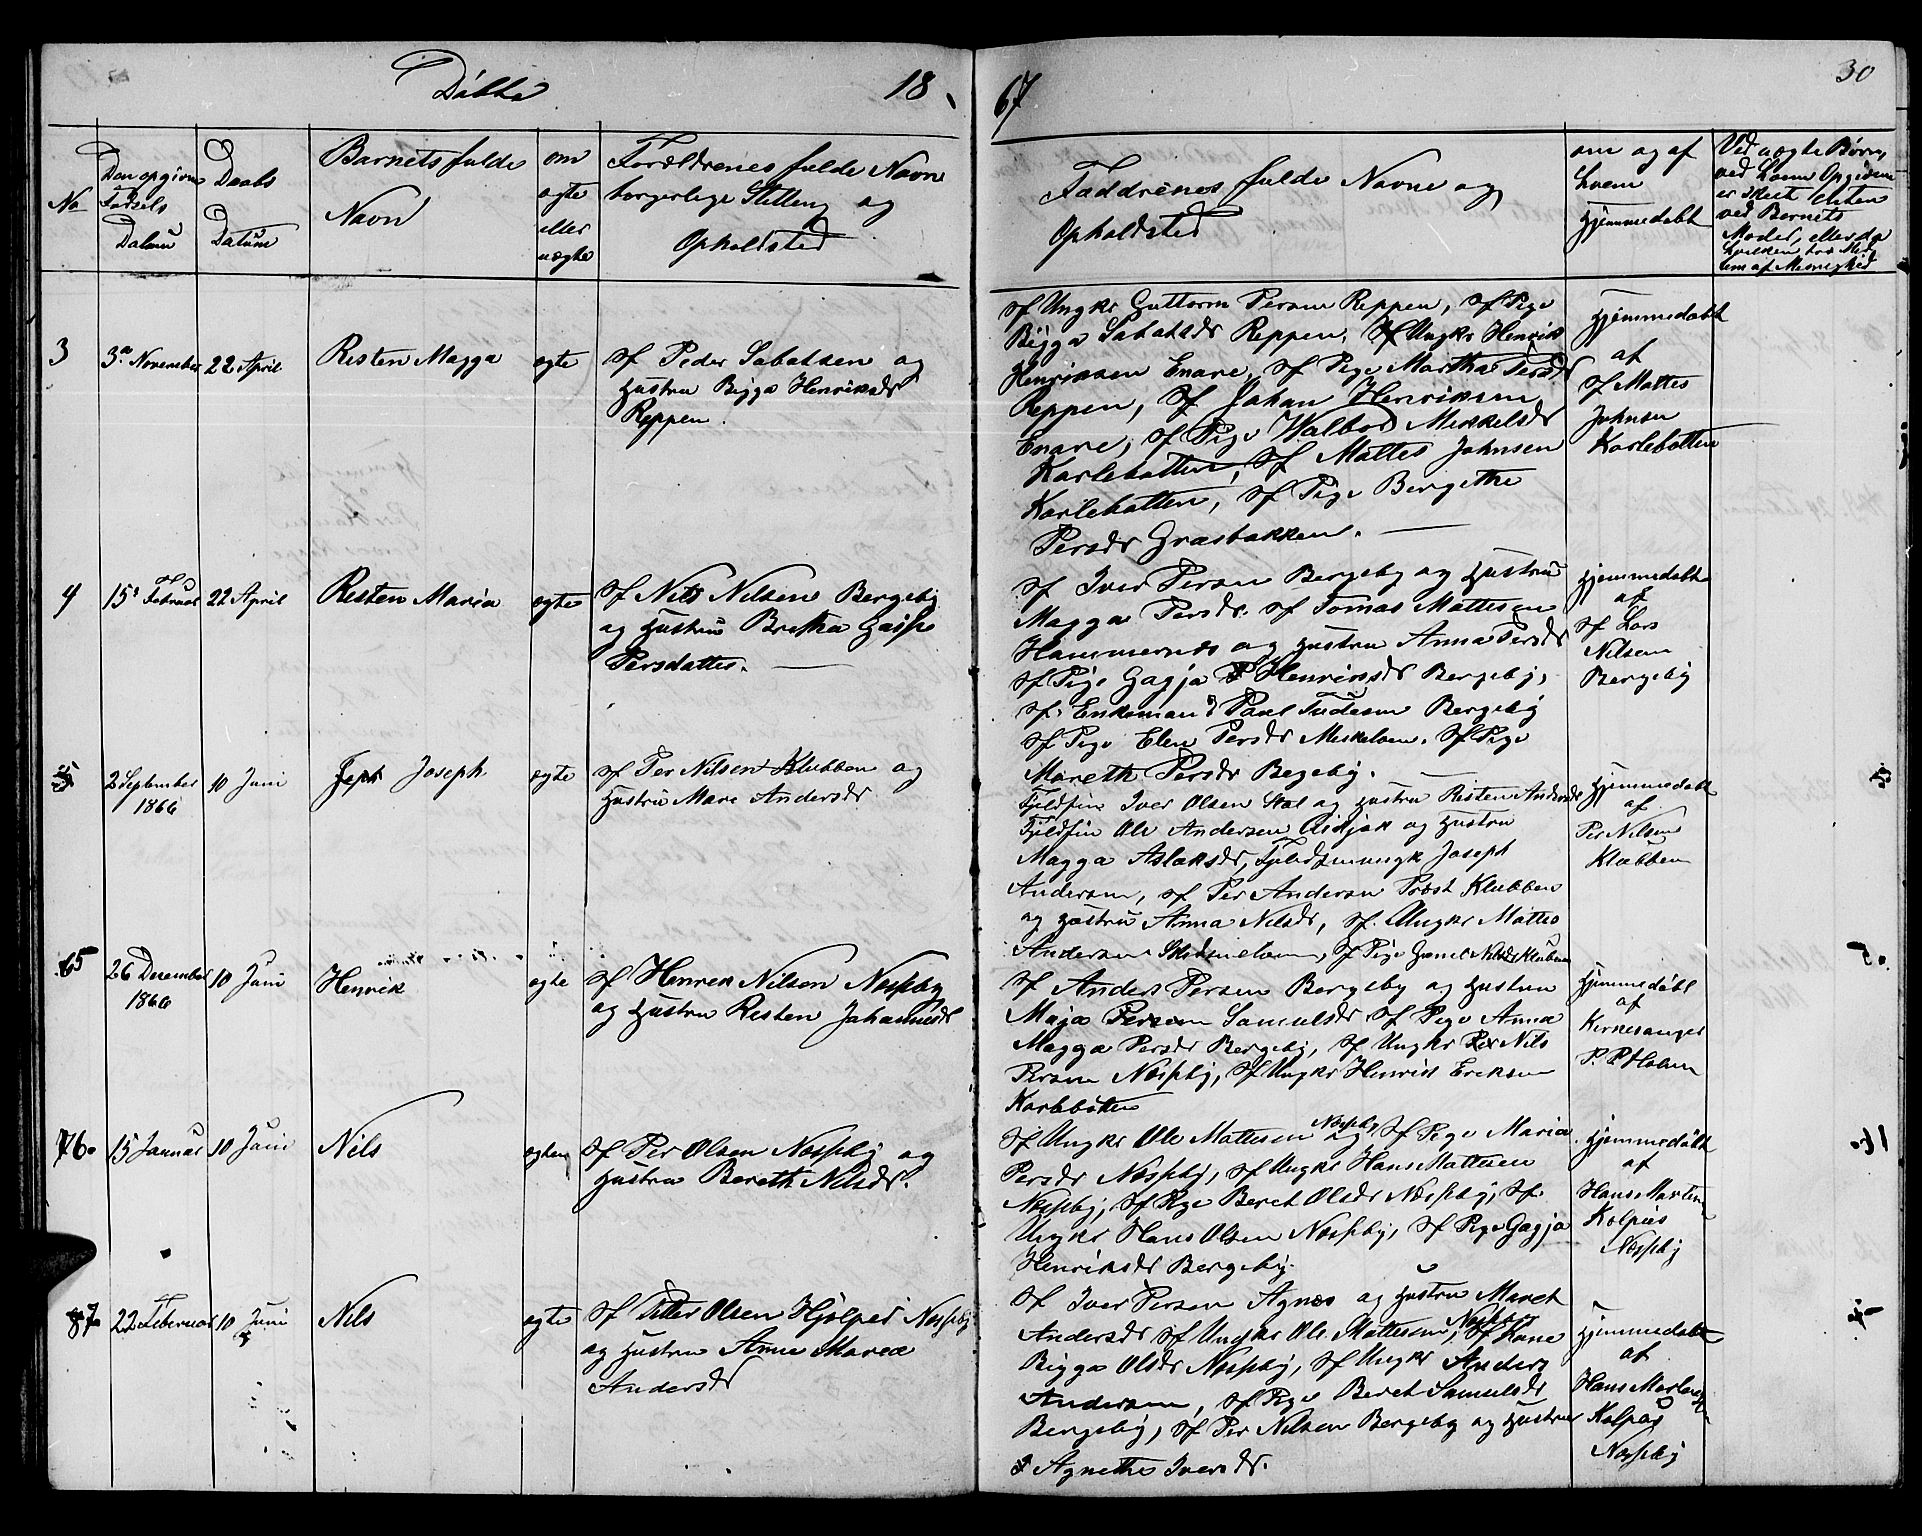 Döbte 18
67
30
No
Den opgivne Fødsels Datum
Daabs Datum
Barnets fulde Navn
om ægte eller uægte
Forældrenes fulde Navn
borgerlige Stilling og
Opholdsted
Faddrenes fulde Navne og
Opholdsted
om og af
hvem
Hjemmedøbt
Ved uægte Børn,
ved hvem Opgivelsen
er skeet enten
ved Barnets
Moder, eller
3
3 November
22 April
Risten Magga
ægte
Sf Peder Sabassen og
Hustru Bigga Henriksdr
Reppen.
Sf Ungkr Guttorm Persen Reppen, Sf Pige
Bigga Sabasdr Reppen, Sf Ungkr Henrik
Henriksen Enare, Sf Pige Martha Persdr
Reppen, Sf Johan Henriksen
Enare, Sf Pige Walbor Mikkelsdr
Karlebotten, Sf Mattes Johnsen
Karlebotten, Sf Pige Bergethe
Persdr Græsbakken.
Hjemmedøbt
af
Sf Mattes
Johnsen
Karlebotten
4
15 Februar
22 April
Risten Maria
ægte
Sf Nils Nilsen Bergeby
og Hustru Bretha Gaise
Persdatter.
Sf Iver Persen Bergeby og Hustru
Magga Persdr. Sf Tomas Mattesen
Hammernæs og Hustru Anna Persdr
Sf Pige Gagja Henriksdr Bergeby,
Sf. Enkeman Paul Tudesen Bergeby
Sf Pige Elen Persdr Meskelven. Sf Pige
Mareth Persdr Begeby.
Hjemmedøbt
af
Sf Lars
Nilsen
Bergeby
5
2 September
1866
10 Juni
Joseph
ægte
Sf Per Nilsen Klubben og
Hustru Mare Andersdr
Fjeldfin Iver Olsen Stal og Hustru Risten Andersdr
Fjeldfin Ole Andersen og Hustru
Magga Aslaksdr, Joseph
Andersen, Sf Per Andersen Prost Klubben
og Hustru Anna Nilsdr, Sf. Ungkr Mattes
Andersen, Sf Pige Nilsdr Klubben
Hjemmedøbt
af
Per Nilsen
Klubben
5
5
26 December
1866
10 Juni
Henrik
ægte
Sf Henrik Nilsen Næsseby
og Hustru Risten Johannesdr
Sf Anders Persen Bergeby og Hustru
Maja Samuelsdr Sf Pige Anna
Magga Persdr Bergeby, Sf Ungkr Nils
Persen Næsseby, Sf Ungkr Henrik Eriksen
Karlebotten
Hjemmedøbt
af
Kirkesanger
P. P. Holm
5
6.
15 Januar
10 Juni
Nils
ægte
Sf Per Olsen Næsseby og
Hustru Bereth Nilsdr.
Sf Ungkr Ole Mattesen Næsseby, Sf Pige Maria
Persdr Næsseby, Sf Ungkr Hans Mattesen
Næsseby, Sf Pige Beret Olsdr Næsseby, Sf.
Ungkr Hans Olsen Næsseby, Sf Pige Gagja
Henriksdr Bergeby.
Hjemmedøbt
af
Hans Morten
Kolpus
Næsseby
7
22 Februar
10 Juni
Nils
ægte
Sf Petter Olsen Hjelper Næsseby
og Hustru Anne Marea
Andersdr
Sf Iver Persen Agnæs og Hustru Maret
Andersdr Sf Ungkr Ole Mattesen Næsseby, Sf Kone
Bigga Olsdr Næsseby, Sf Ungkr Anders
Andersen, Sf Pige Beret Samuelsdr
Bergeby, Sf Per Nilsen Bergeby og Hustru
Agnethe Iversdr.
Hjemmedøbt
af
Hans Morten
Kolpus
Næsseby